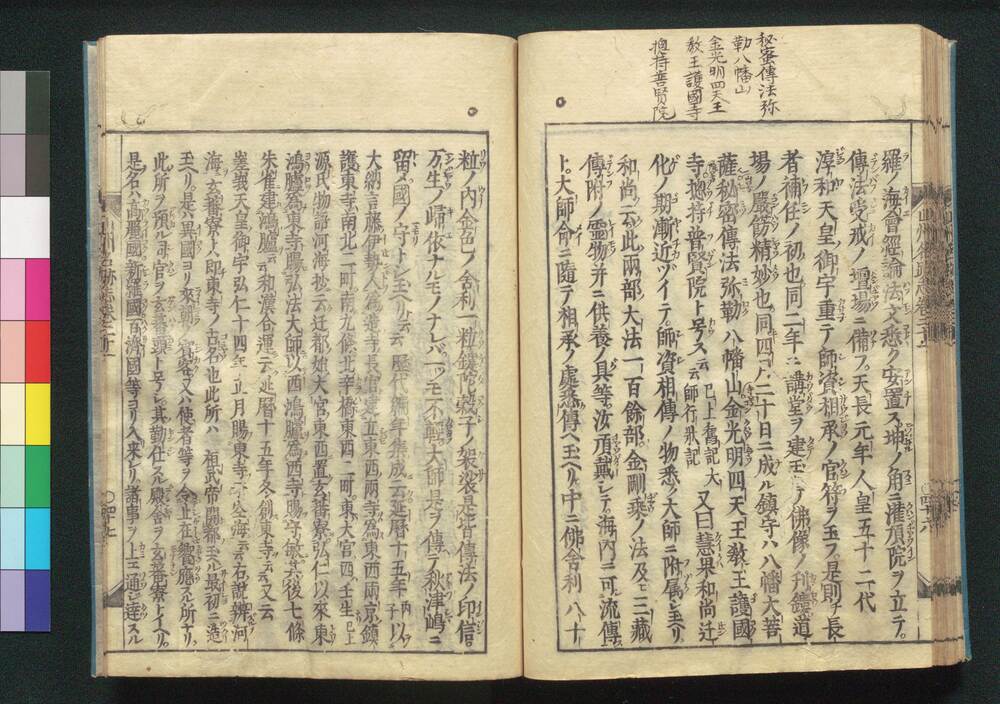 秘蜜傳法弥
勒八幡山
金光明四天王
教王護國寺
揔持普賢院
羅ノ海會經論ノ法文悉ク安置ス坤ノ角ニ灌頂院ヲ立テ。
傳法受戒ノ壇場ニ備フ。天長元年人皇五十二代
淳和天皇ノ御宇重テ師資相承ノ官符ヲ玉フ。是則チ長
者補任ノ初也同二年ニ講堂ヲ建玉フ佛像ノ刋鏤道
場ノ嚴餝精妙也。同四月二十日ニ成ル鎮守ハ八幡大菩
薩秘密傳法弥勒八幡山金光明四天王教王護國
寺揔持普賢院ト号ス云云 已上舊記大師行狀記 又曰慧果和尚迁
化ノ期漸近ヅイテ。師資相傳ノ物悉ク大師ニ附属シ玉ヘリ
和尚ノ云此兩部大法一百餘部金剛乘ノ法及ヒ三藏
傳附ノ靈物并ニ供養ノ具等汝頂戴シテ。海内ニ可流傳
ト。大師命ニ隨テ相承ノ處悉傳ヘ玉ヘリ。中ニ佛舍利八十
粒ノ内金色ノ舍利一粒鏤陀榖子ノ袈裟是皆傳法ノ印信。
万生ノ歸依ナルモノナレバ。イツモ不輕大師是ヲ傳テ秋津嶋ニ
留メ國ノ守トシ玉ヘリ云云 歷代編年集成云延曆十五年丙子以
大納言藤伊勢人爲造寺長官建立東西兩寺為東西兩京鎮
護東寺南北二町南九條北辛橋東西二町東大宮西壬生已上
源氏物語河海抄云迁都始大宮東西置玄蕃寮弘仁以來東
鴻臚為東寺賜弘法大師以西鴻臚為西寺賜守敏其後七條
朱雀建鴻臚云云和漢合運云延曆十五年冬創東寺云云又云
嵯峩天皇御宇弘仁十四年正月賜東寺于空海云云右說辨河
海ニ玄蕃寮ト八即東寺ノ古名也此所ハ 祖武帝開都玉ル最初ニ造
玉ヘリ。是ハ異國ヨリノ來朝ノ賓客又ハ使者等ヲ令止在饗應ス所ナリ。
此所ヲ預ル司官ヲ玄蕃頭ト号シ其勤仕スル殿舍ヲ玄蕃寮トイヘリ。
是名ハ高麗國新羅國百濟國等ヨリ入來レリ諸事ヲ上エ通シ達スル